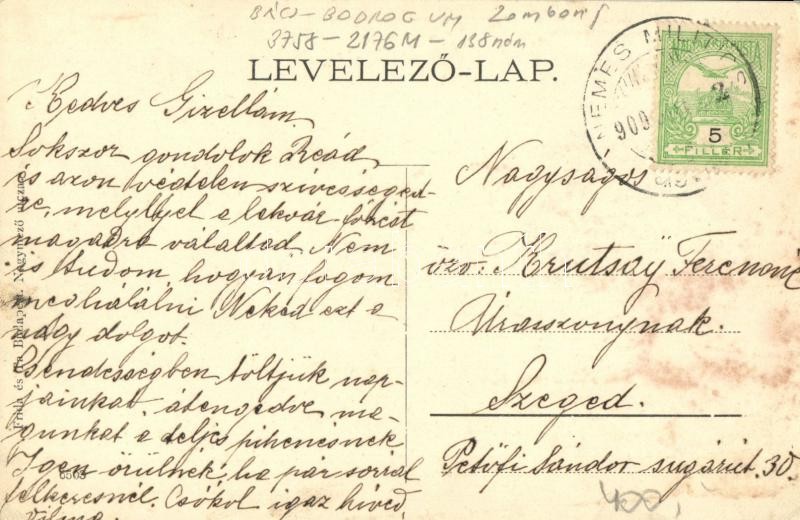 BÁCS-BODROG VM Zombori j
3758-2176M-138 nóm
LEVELEZŐ-LAP.
NEMES MILITICS
909
2
5
FILLÉR
Kedves Gizellám,
Sokszor gondolok Reád
és azon végtelen szívességed-
re, mellyel a lekvár főzést
magadra válaltad. Nem
is tudom, hogyan fogom
meghálálni Neked ezt a
nagy dolgot.
Csendességben töltjük nap-
jainkat, átengedve ma-
gunkat a teljes pihenésnek
Igen örülnék, ha pár sorral
felkeresnél. Csókol igaz híved
Vilma.
Nagyságos
özv. Krutsay Ferencné
Úrasszonynak.
Szeged.
Petőfi Sándor sugárút. 30.
400,
6503
és Budapest, Nagymező